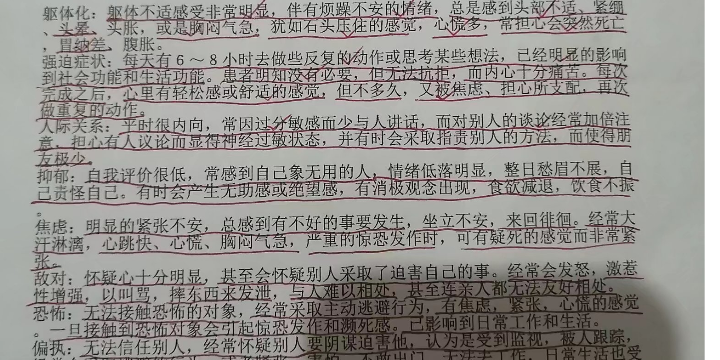 躯体化：躯体不适感受非常明显，伴有烦躁不安的情绪，总是感到头部不适、紧绷
、头晕、头胀，或是胸闷气急，犹如石头压住的感觉，心慌多，常担心会突然死亡
，胃纳差、腹胀。
强迫症状：每天有6～8小时去做些反复的动作或思考某些想法，已经明显的影响
到社会功能和生活功能。患者明知没有必要，但无法抗拒，而内心十分痛苦。每次
完成之后，心里有轻松感或舒适的感觉，但不多久，又被焦虑、担心所支配，再次
做重复的动作。
人际关系：平时很内向，常因过分敏感而少与人讲话，而对别人的谈论经常加倍注
意，担心有人议论而显得神经过敏状态，并有时会采取指责别人的方法，而使得朋
友极少。
抑郁：自我评价很低，常感到自己象无用的人，情绪低落明显，整日愁眉不展，自
己责怪自己。有时会产生无助感或绝望感，有消极观念出现，食欲减退，饮食不振
。
焦虑：明显的紧张不安，总感到有不好的事要发生，坐立不安，来回徘徊。经常大
汗淋漓，心跳快、心慌、胸闷气急，严重的惊恐发作时，可有疑死的感觉而非常紧
张。
敌对：怀疑心十分明显，甚至会怀疑别人采取了迫害自己的事。经常会发怒，激惹
性增强，以叫骂，摔东西来发泄，与人难以相处，甚至连亲人都无法友好相处。
恐怖：无法接触恐怖的对象，经常采取主动逃避行为，有焦虑，紧张，心慌的感觉
。一旦接触到恐怖对象会引起惊恐发作和濒死感。已影响到日常工作和生活。
偏执：无法信任别人，经常怀疑别人要阴谋迫害他，认为是受到监视，被人跟踪，